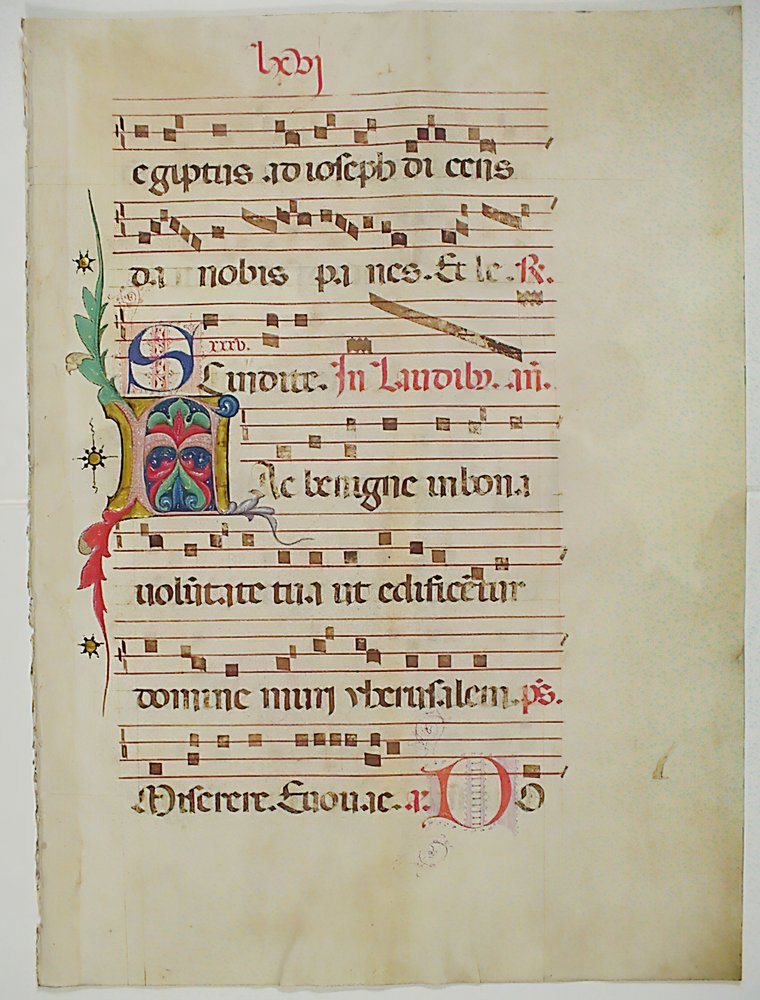 lxvj
egiptus ad ioseph di cens
da nobis pa nes. Et le. R.
xxxv.
S Cindite. In Laudib9. añ.
Ac benigne inbona
uolūtate tua ut edificētur
domine muri yherusalem. ps.
Miserere. Euouae. a. D O